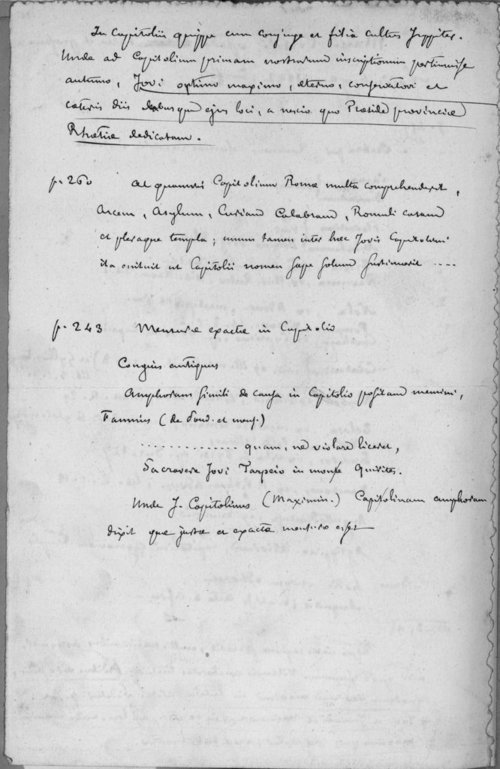 In Capitoliis quippe cum conjuge et filia cultus Juppiter.
Unde ad Capitolium primam nostrarum inscriptionum pertinuisse
autumo, Jovi optimo maximo, aeterno, conservatori et
cateris diis deabusque ejus loci, a nescio quo Praside provinciae
Rhaetiae dedicatam.
p. 260 At quamvis Capitolium Romae multa comprehenderit,
Arcem, Asylum, Curiam Calabram, Romuli casam
et pleraque templa; unum tamen inter haec Jovis Capitolini
ita enituit ut Capitolii nomen saepe solum sustinuerit ....
p. 243 Mensurae exactae in Capitolio
Congius antiquus
Amphoram simili de causa in Capitolio positam memini,
Fannius (de Pond. et mens.)
............. quam, ne violare liceret,
Sacravere Jovi Tarpeio in monte Quirites.
Unde J. Capitolinus (Maximin.) Capitolinam amphoram
dixit quae justae et exactae mensurae esset